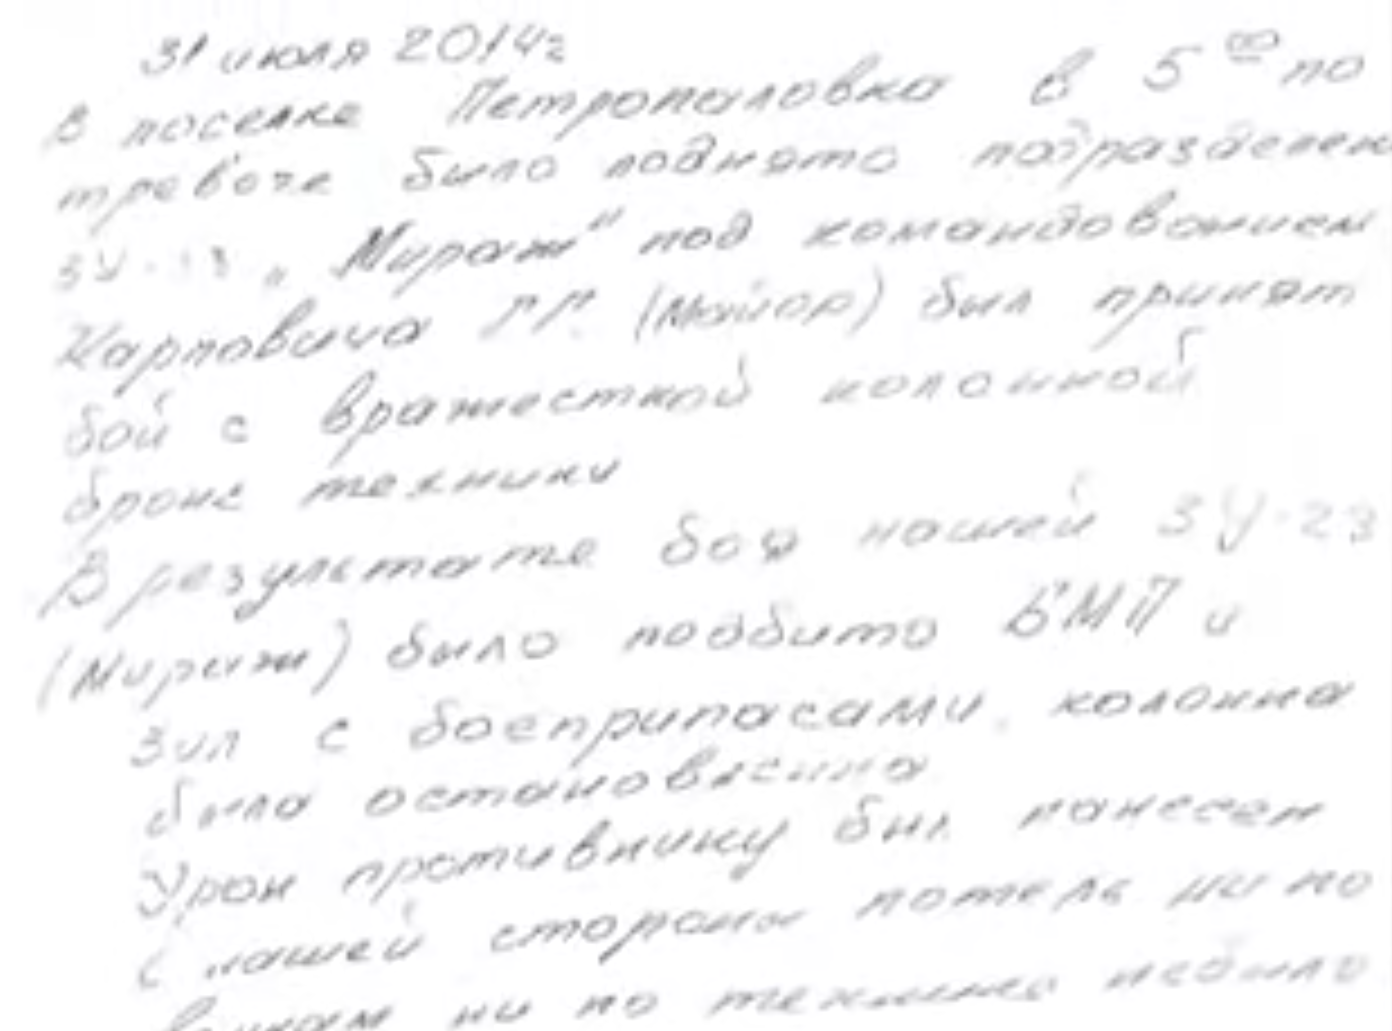 31 июля 2014г
В поселке Петропаловка в 5 00 по
тревоге было поднято подразделен
ЗУ-23 „Мираж" под командованием
Карповича Г.Г. (Майор) был принят
бой с вражесткой колонной
броне техники
В результате боя нашей ЗУ-23
(Мираж) было подбито БМП и
Зил с боеприпасами, колонна
была остановленна
Урон противнику был нанесен
с нашей стороны потерь ни по
ни по технике небыло